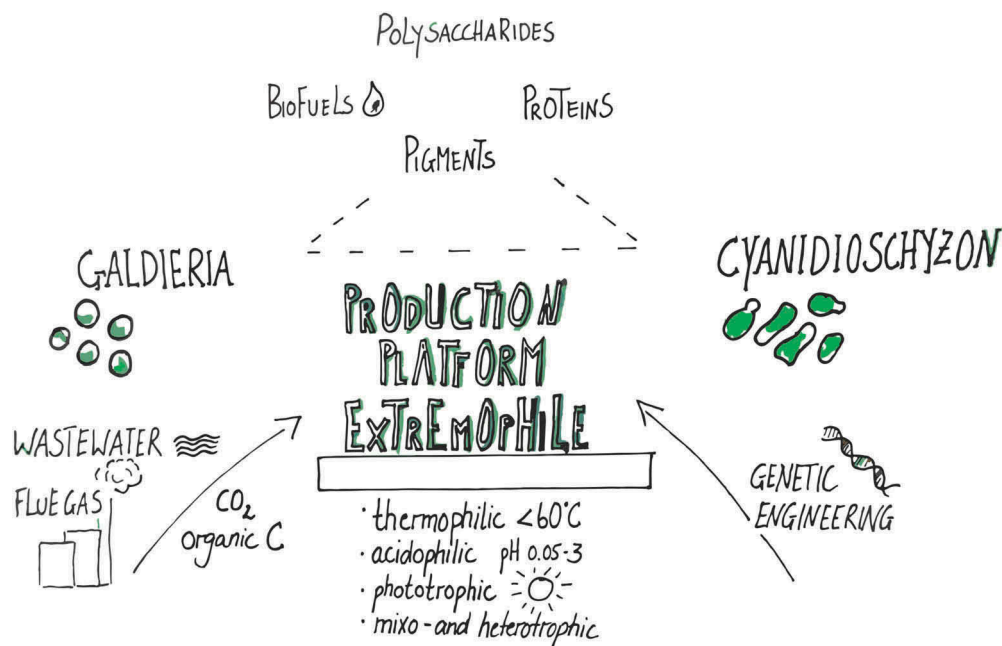 POLYSACCHARIDES
BIOFUELS
PROTEINS
PIGMENTS
GALDIERIA
CYANIDIOSCHYZON
PRODUCTION
PLATFORM
EXTREMOPHILE
WASTEWATER
FLUE GAS
CO₂
organic C
GENETIC
ENGINEERING
· thermophilic <60°C
· acidophilic pH 0.05-3
· phototrophic
· mixo- and heterotrophic